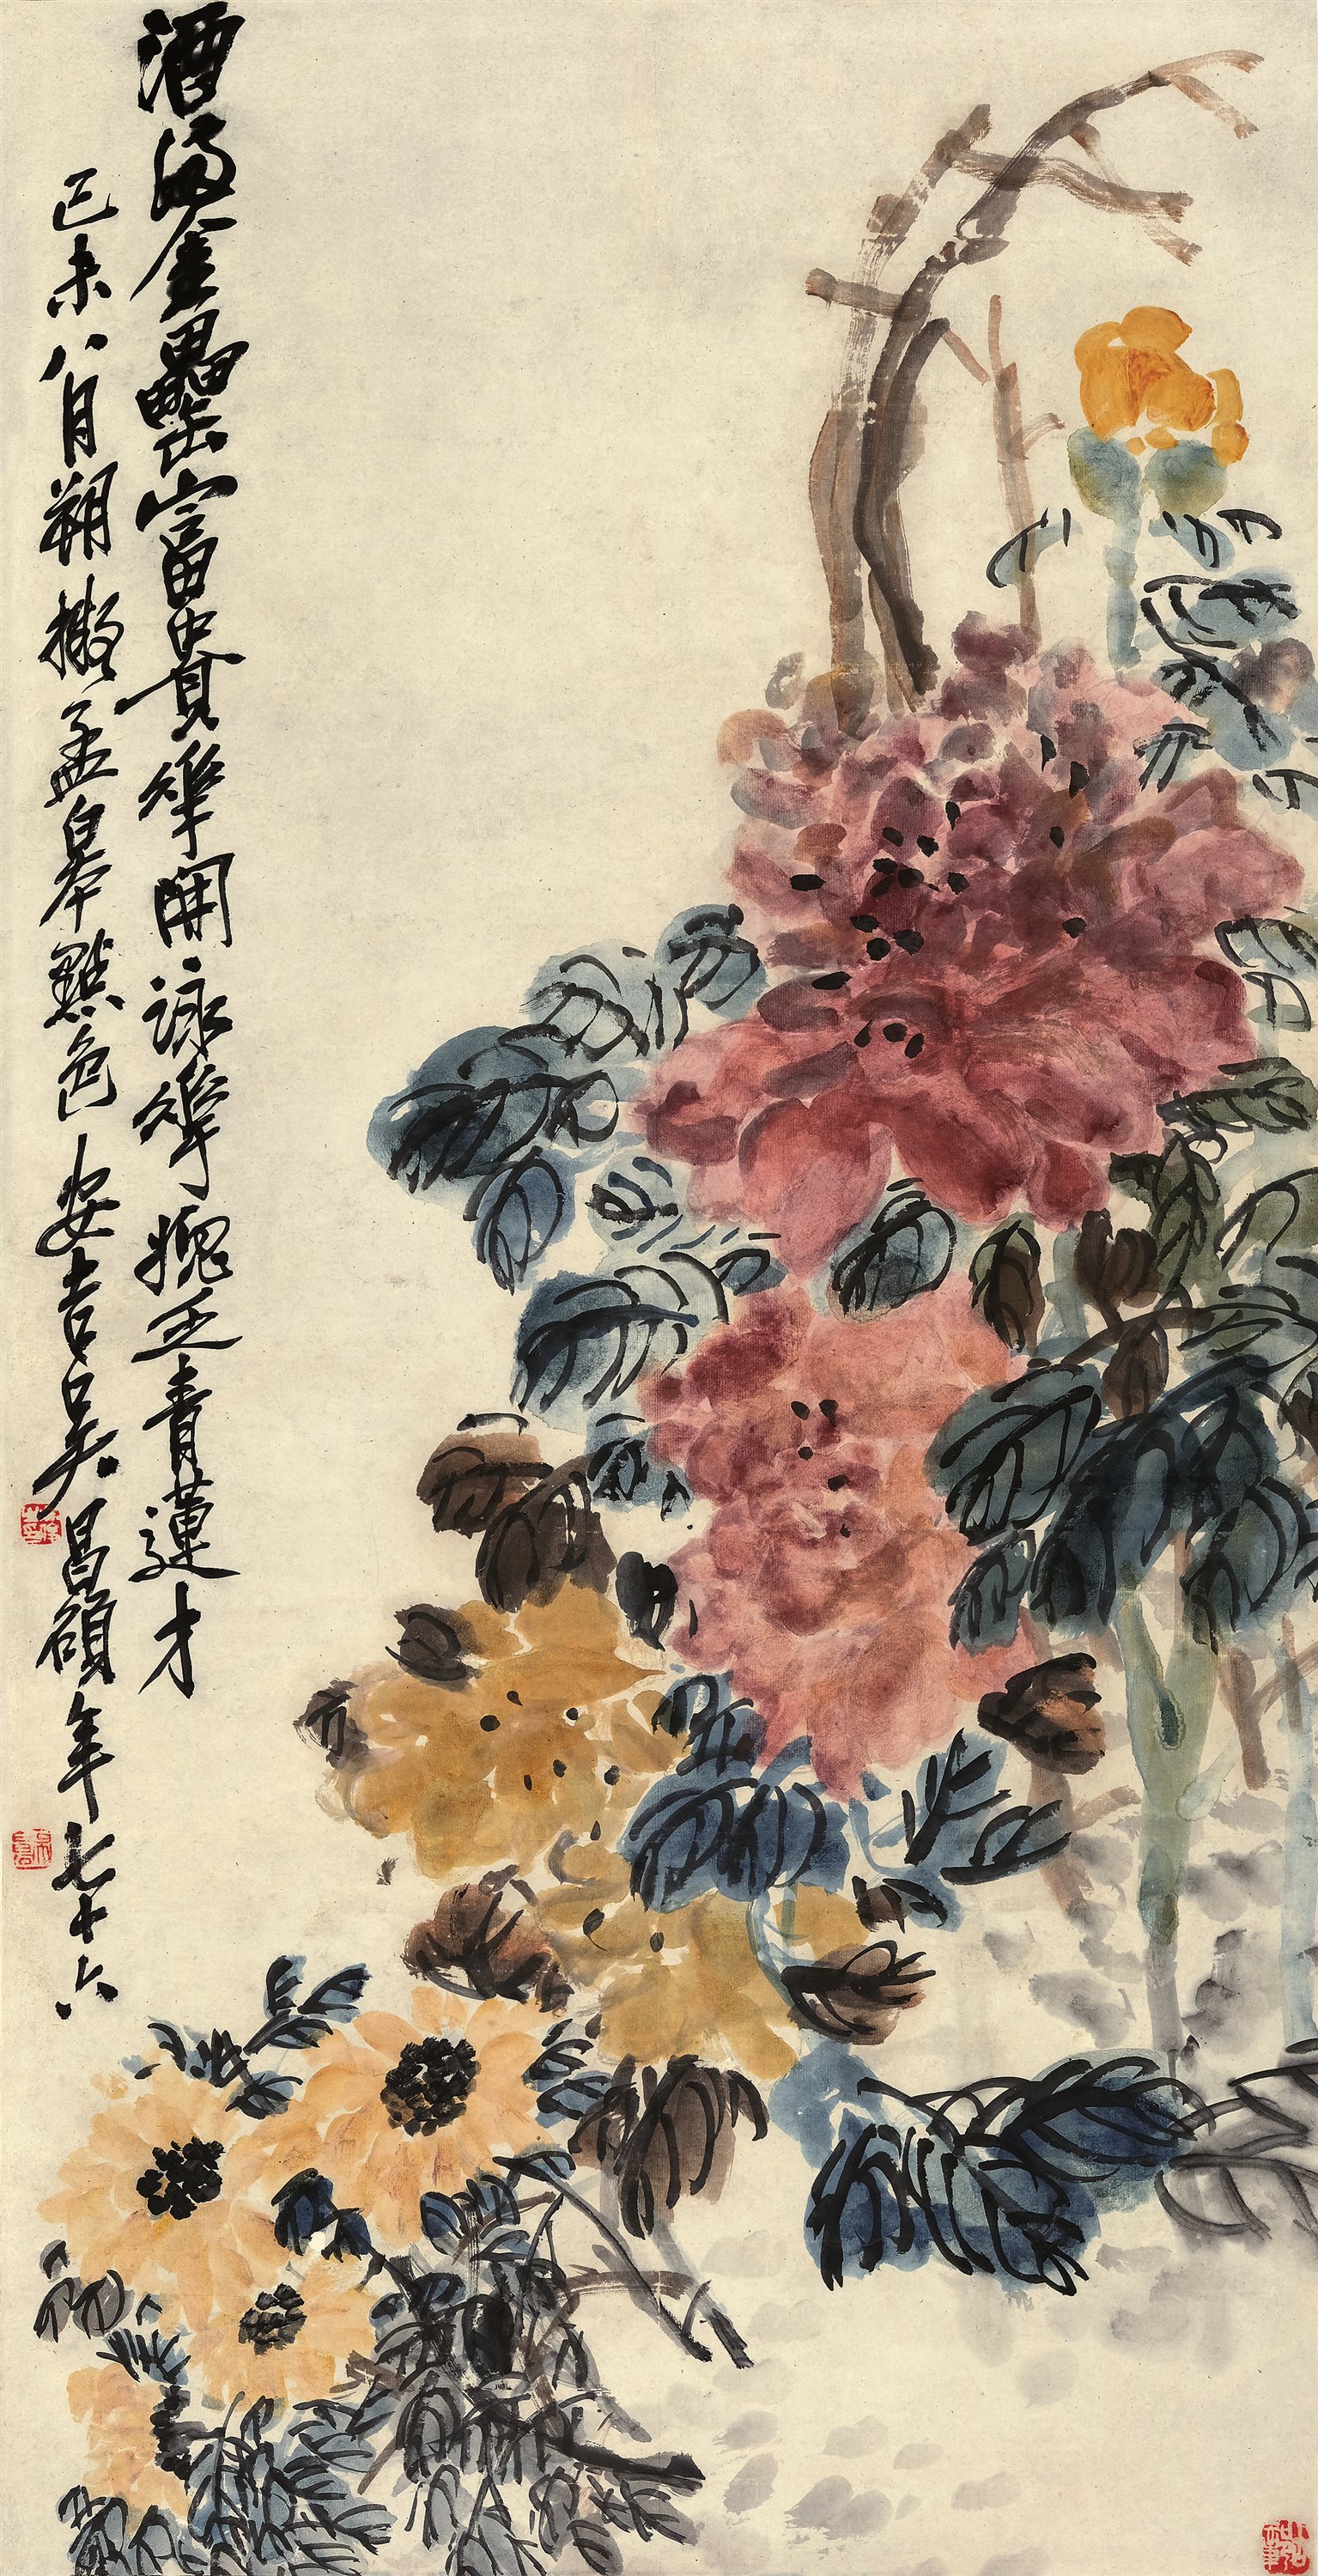 酒滿金罍富貴華開詠華愧乏青蓮才
己未八月朔擬孟皋點色安吉吳昌碩年七十六